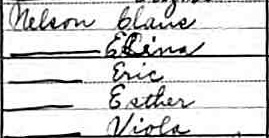 Nelson Claus
—— Elina
—— Eric
—— Esther
—— Viola